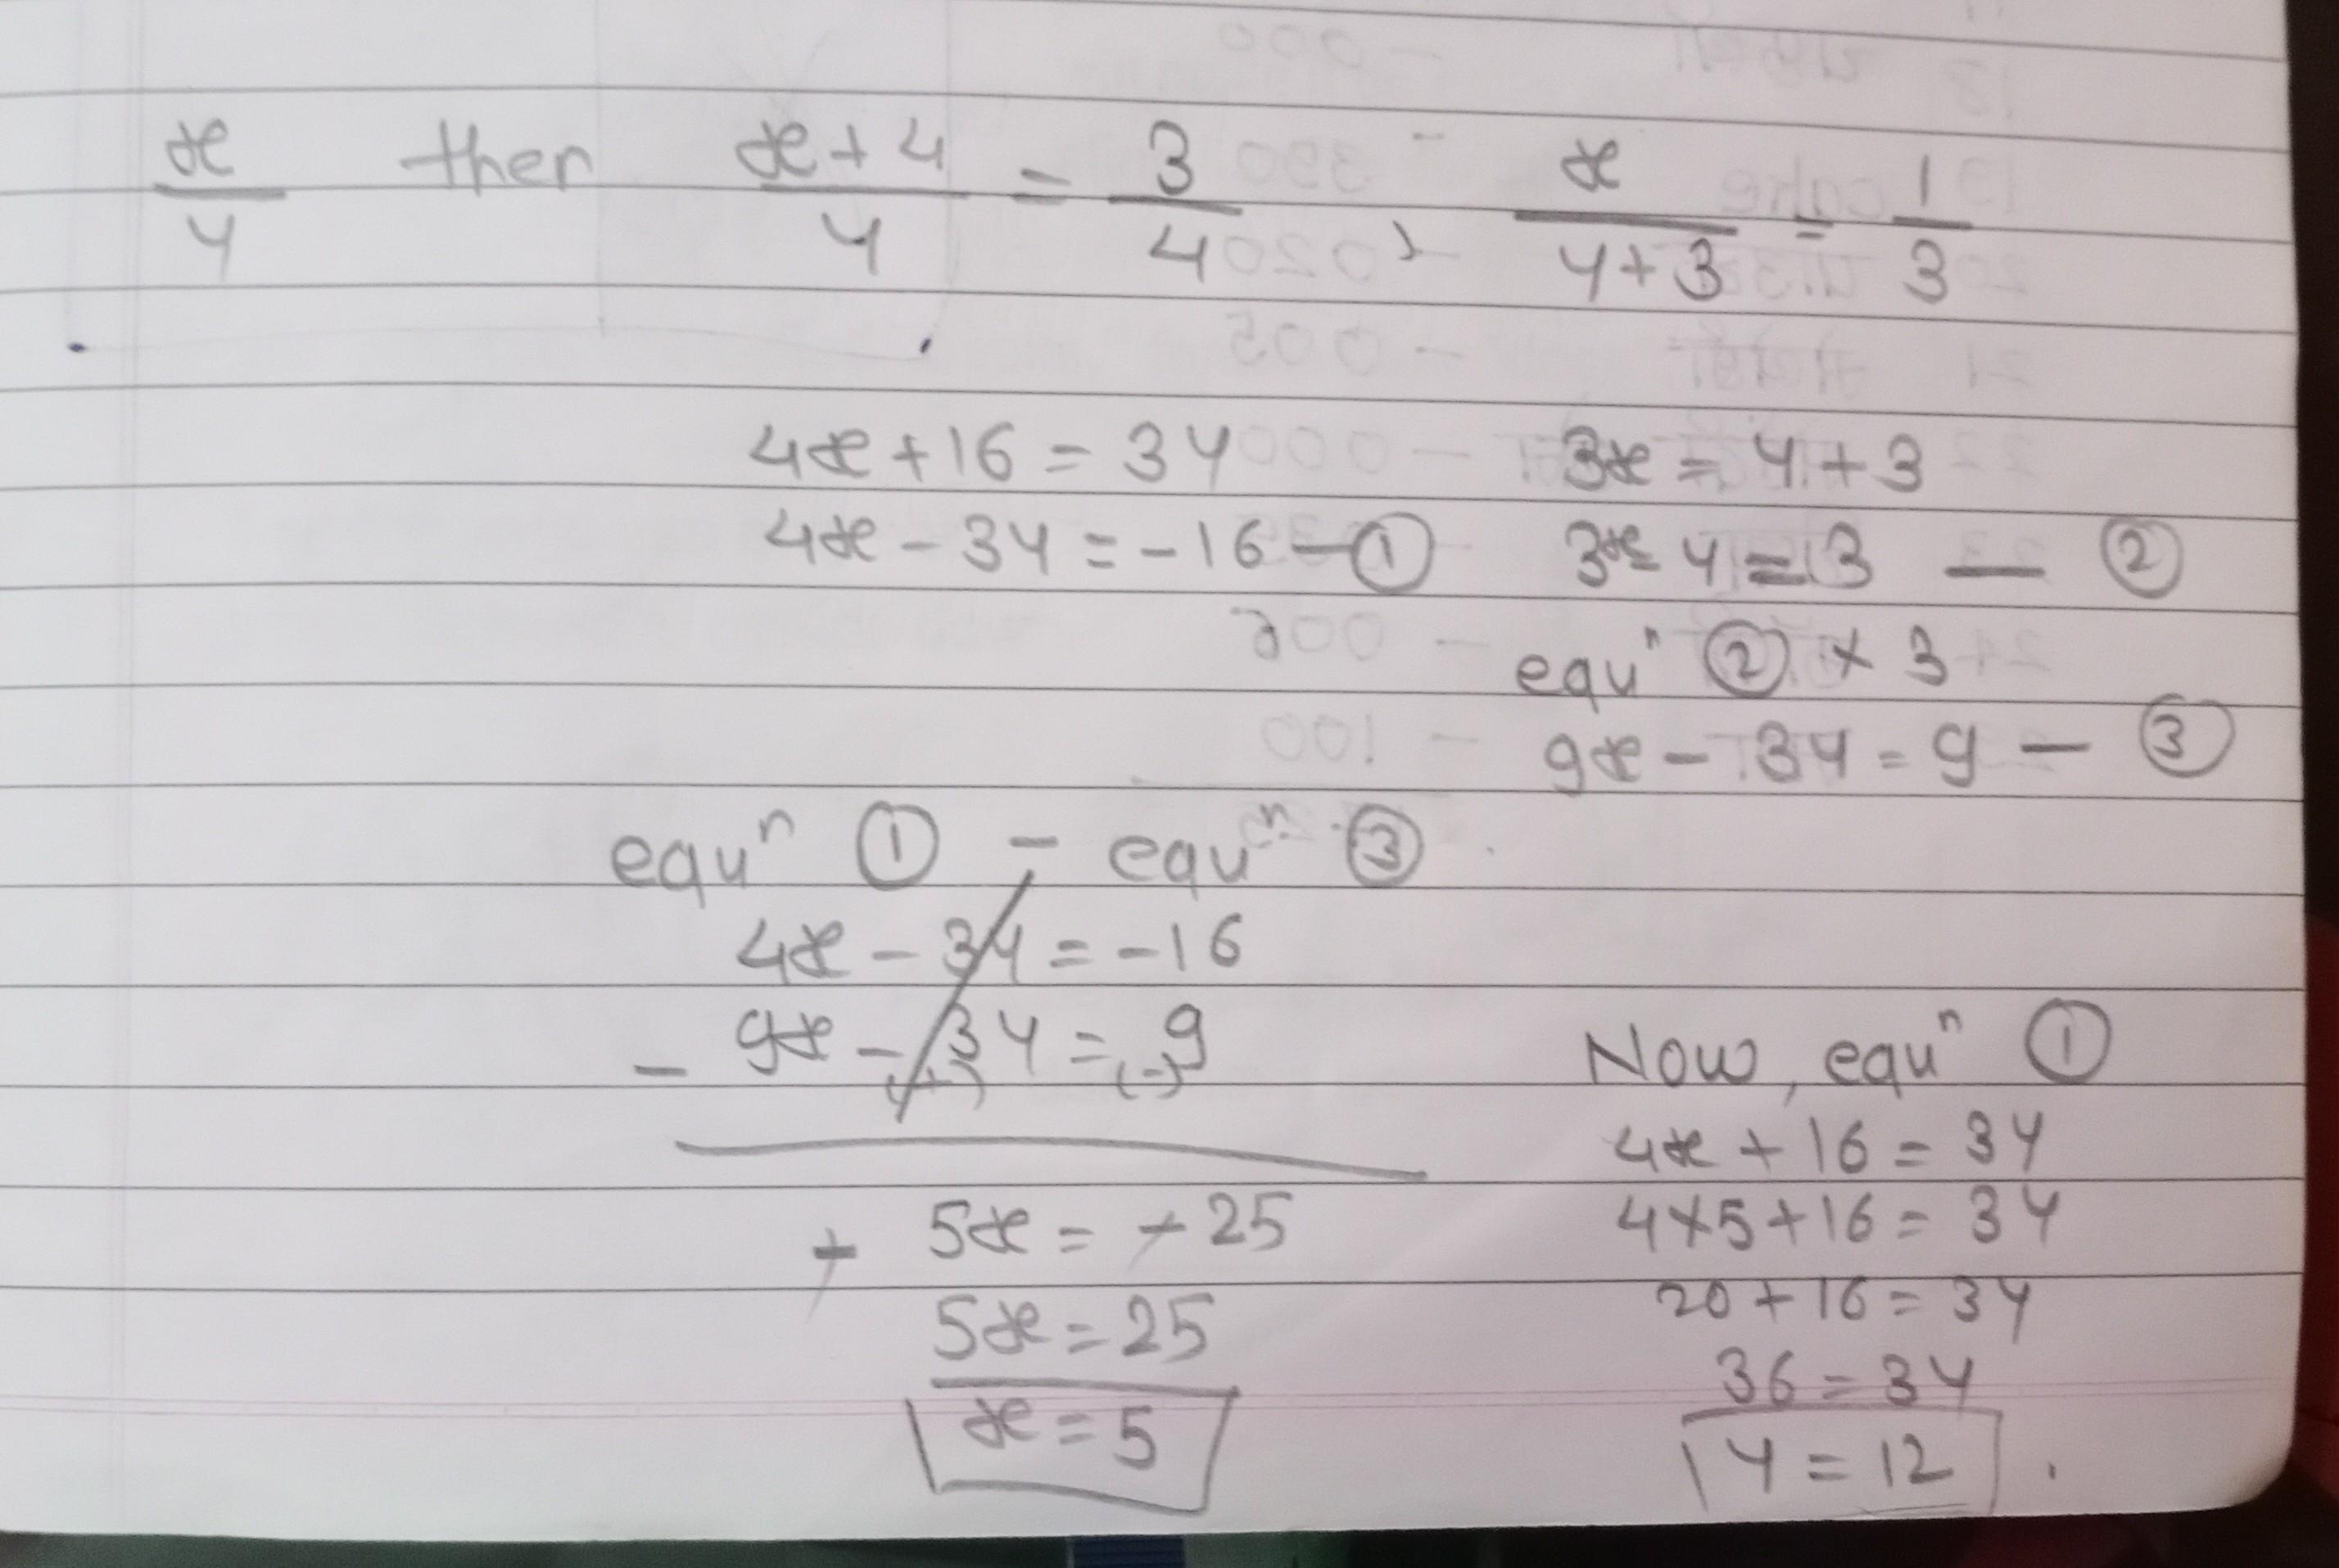 x/y then x+4/y = 3/4 , x/y+3 = 1/3
4x+16 = 3y
3x = y+3
4x - 3y = -16 — ①
3x - y = 3 — ②
equⁿ ② × 3
9x - 3y = 9 — ③
equⁿ ① - equⁿ ③
4x - 3y = -16
- 9x - 3y = 9
(+) (-)
+ 5x = + 25
5x = 25
x = 5
Now, equⁿ ①
4x + 16 = 3y
4×5+16 = 3y
20+16 = 3y
36 = 3y
y = 12